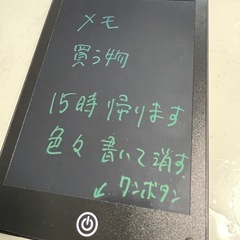 メモ
買う物
15時帰ります
色々書いて消す
↙ワンボタン